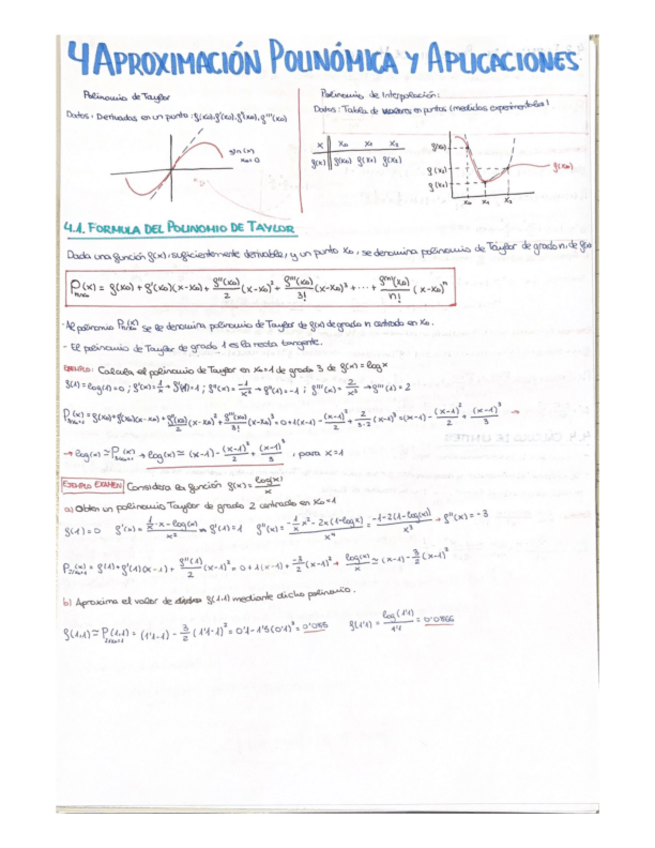 4 APROXIMACIÓN POLINÓMICA Y APLICACIONES
Polinomio de Taylor
Datos: Derivadas en un punto: f(x₀), f'(x₀), f''(x₀), f'''(x₀)
sin(x)
x₀=0
Polinomio de Interpolación:
Datos: Tabla de valores en puntos (medidas experimentales)
x | x₀ x₁ x₂
f(x) | f(x₀) f(x₁) f(x₂)
f(x₀)
f(x₂)
f(x₁)
x₀ x₁ x₂
4.1. FORMULA DEL POLINOMIO DE TAYLOR
Dada una función f(x), suficientemente derivable, y un punto x₀, se denomina polinomio de Taylor de grado n, de f(x)
P(x) = f(x₀) + f'(x₀)(x-x₀) + f''(x₀)/2 (x-x₀)² + f'''(x₀)/3! (x-x₀)³ + ... + fⁿ(x₀)/n! (x-x₀)ⁿ
- Al polinomio P(x) se le denomina polinomio de Taylor de f(x) de grado n centrado en x₀.
- El polinomio de Taylor de grado 1 es la recta tangente.
EJEMPLO: Calcula el polinomio de Taylor en x₀=1 de grado 3 de f(x) = log x
f(1) = log(1) = 0 ; f'(x) = 1/x → f'(1) = 1 ; f''(x) = -1/x² → f''(1) = -1 ; f'''(x) = 2/x³ → f'''(1) = 2
P(x) = f(x₀) + f'(x₀)(x-x₀) + f''(x₀)/2 (x-x₀)² + f'''(x₀)/3! (x-x₀)³ = 0 + 1(x-1) - (x-1)²/2 + 2/3·2 (x-1)³ = (x-1) - (x-1)²/2 + (x-1)³/3 →
→ log(x) ≃ P(x) → log(x) ≃ (x-1) - (x-1)²/2 + (x-1)³/3 , para x≃1
EJEMPLO EXAMEN Considera la función f(x) = log(x)/x
a) Obten un polinomio Taylor de grado 2 centrado en x₀=1
f(1) = 0 f'(x) = (1/x · x - log(x))/x² → f'(1) = 1 f''(x) = (-1/x x² - 2x(1-log x))/x⁴ = (-1-2(1-log(x)))/x³ → f''(x) = -3
P(x) = f(1) + f'(1)(x-1) + f''(1)/2 (x-1)² = 0 + 1(x-1) + -3/2 (x-1)² → log(x)/x ≃ (x-1) - 3/2 (x-1)²
b) Aproxima el valor de f(1.1) mediante dicho polinomio.
f(1,1) ≃ P(1,1) = (1'1-1) - 3/2 (1'1-1)² = 0'1 - 1'5(0'1)² = 0'085 f(1'1) = log(1'1)/1'1 = 0'0866